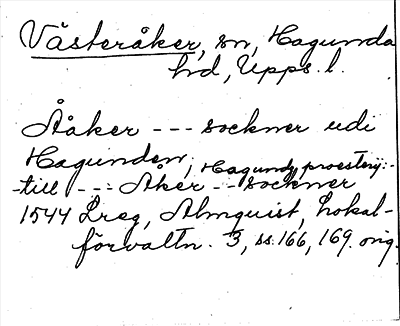 Västeråker, sn, Hagunda
hd, Upps. l.
Ååker --- sockner udi
Hagunden; Hagundz proesterij:-
-till --- Åker -- sockner
1544 Lreg, Almquist, Lokal-
förvaltn. 3, ss. 166, 169. orig.